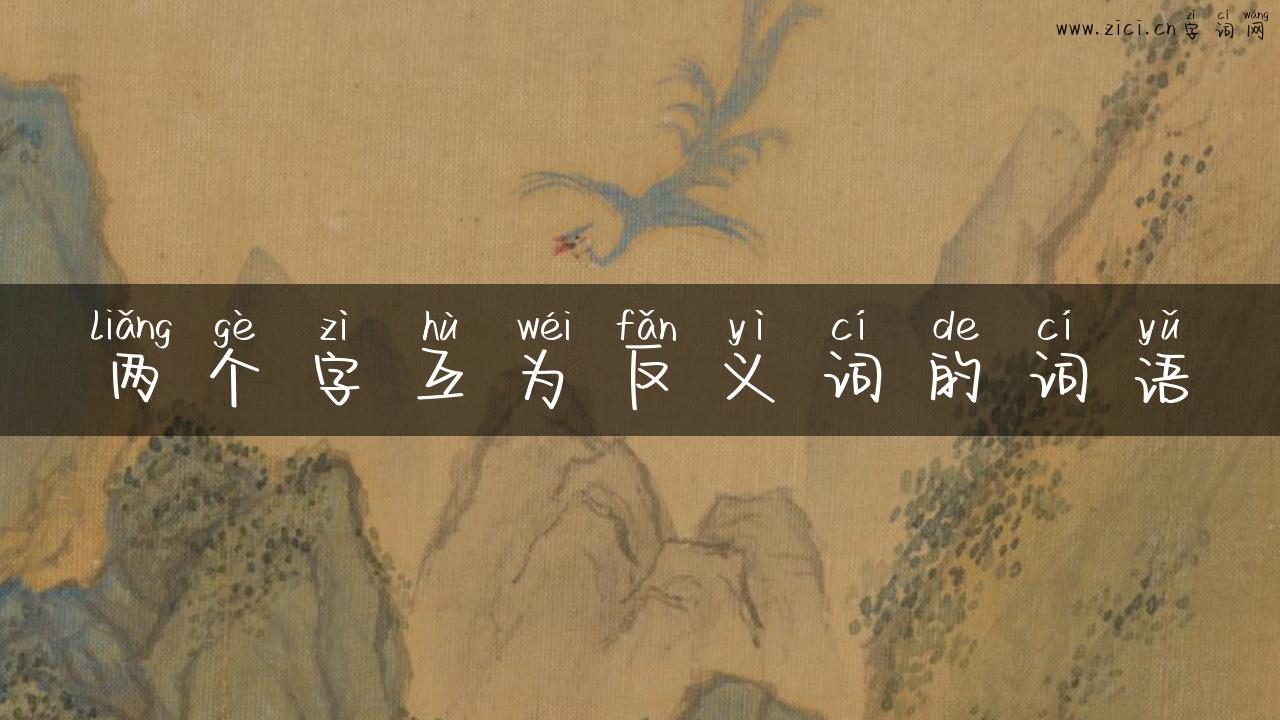 zì cí wǎng
www.zici.cn字词网
liǎng gè zì hù wéi fǎn yì cí de cí yǔ
两个字互为反义词的词语